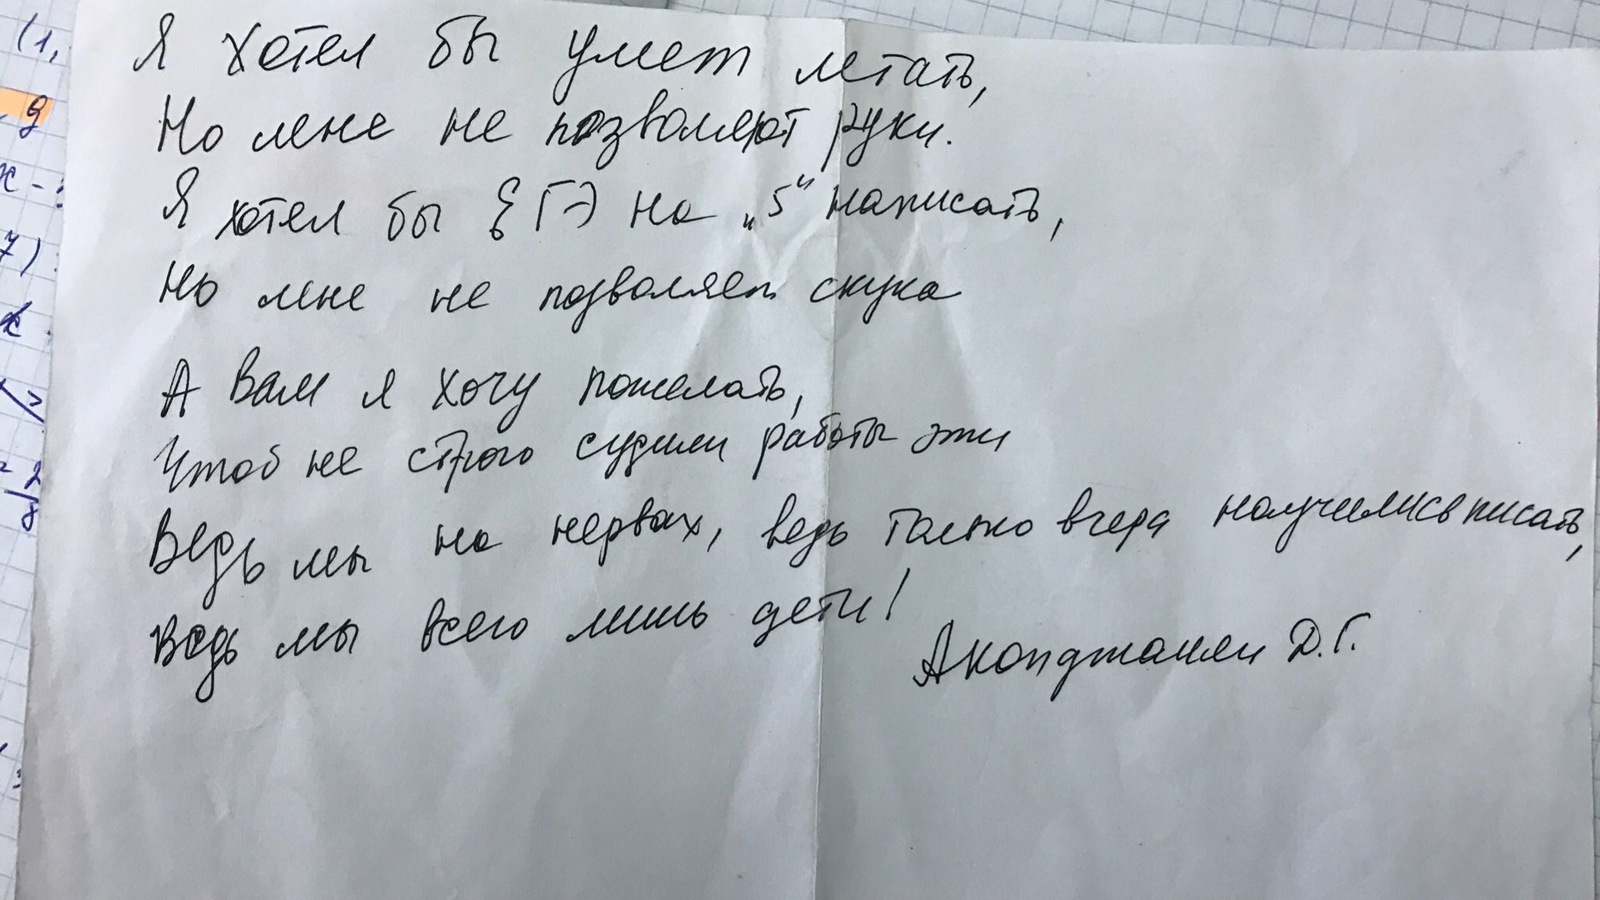 Я хотел бы умет летать,
Но мне не позволяют руки.
Я хотел бы ЕГЭ на „5“ написать,
Но мне не позволяет скука
А Вам я хочу пожелать,
Чтоб не строго судили работы эти
Ведь мы на нервах, ведь только вчера научились писать,
Ведь мы всего лишь дети!
Акопджанян Д.Г.
(1,
9
x -
7)